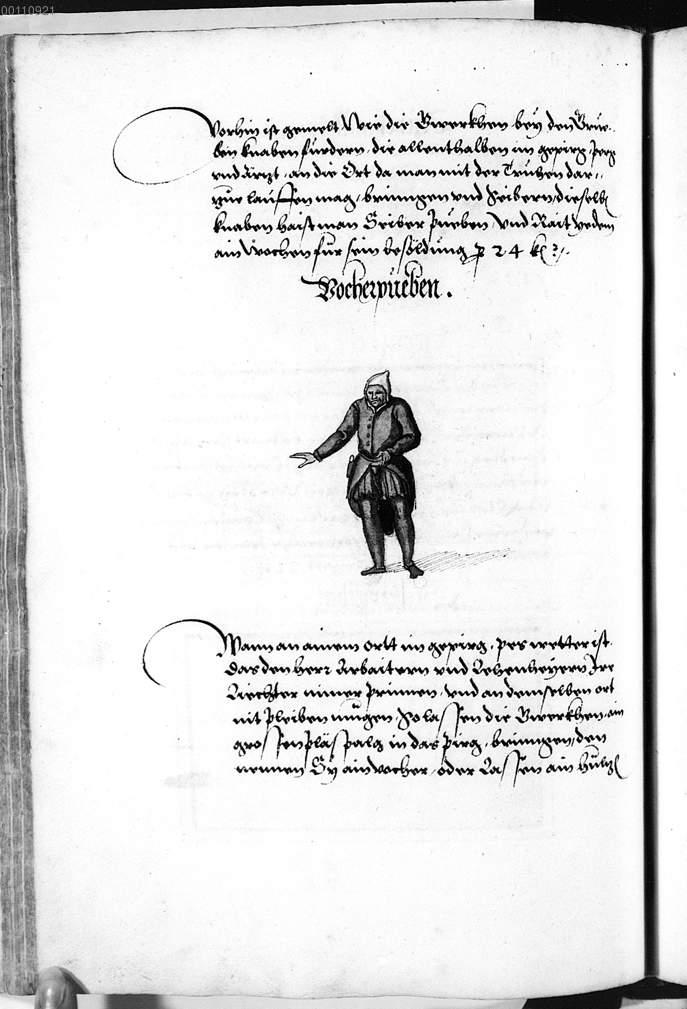 00110921
Vorhin ist gemelt Wie die Gwerkhen bey den Grue..
ben knaben fürdern, die allenthalben im gepirg Perg
vnd Ärzt, an die Ort da man mit der Truhen dar,,
zue lauffen mag, bringen vnd Seibern, dieselb
knaben haist man Seiber Pueben Vnd Rait yedem
ain Wochen für sein besöldung p 24 k
Vocherpueben.
Wann an ainem ortt im gepirg, pes wetter ist
das den herr Arbaitern vnd Lehenheyern Ire
Liechter nimer Prinnen, vnd an demselben ort
nit Pleiben mügen, So lassen die Gwerkhen, ain
grossen Pläspalg in das Pirg, bringen, den
nennen Sy ain vocher, oder Lassen ain hültz